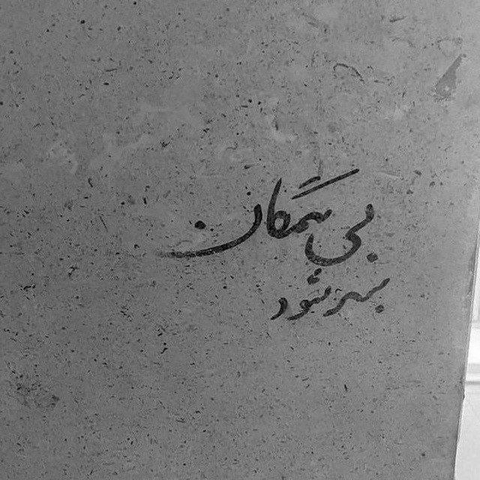 بی همگان
بسر شود